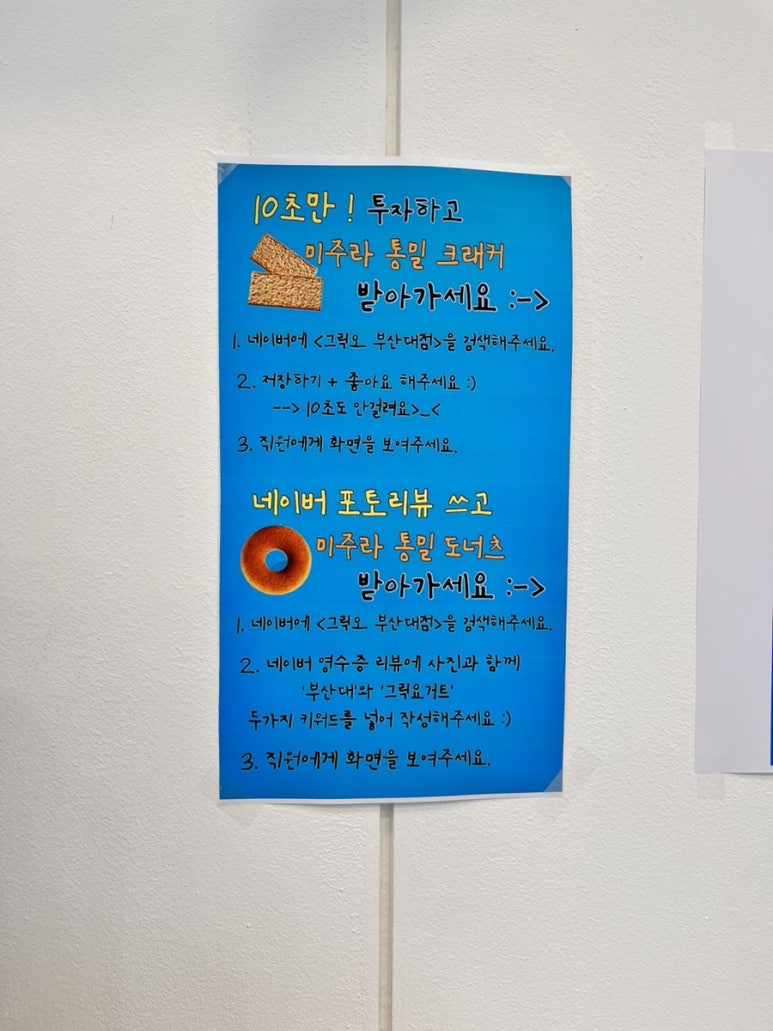 10초만! 투자하고
미주라 통밀 크래커
받아가세요 :->
1. 네이버에 <그릭오 부산대점>을 검색해주세요.
2. 저장하기 + 좋아요 해주세요 :)
--> 10초도 안걸려요>_<
3. 직원에게 화면을 보여주세요.
네이버 포토리뷰 쓰고
미주라 통밀 도너츠
받아가세요 :->
1. 네이버에 <그릭오 부산대점>을 검색해주세요.
2. 네이버 영수증 리뷰에 사진과 함께
'부산대'와 '그릭요거트'
두가지 키워드를 넣어 작성해주세요 :)
3. 직원에게 화면을 보여주세요.